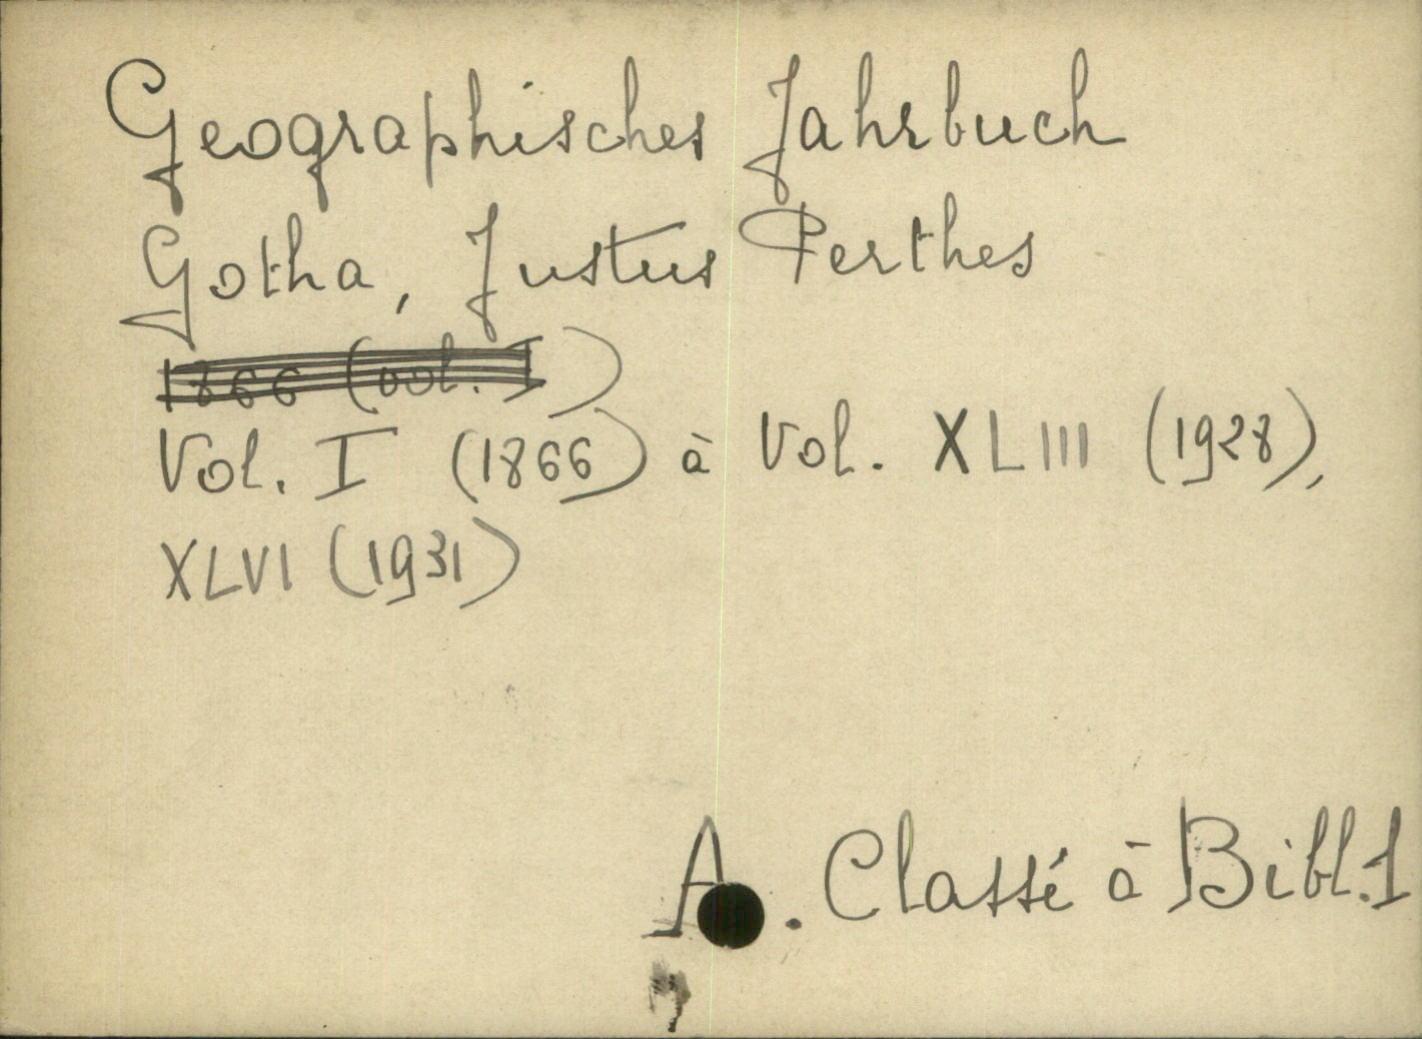 Geographisches Jahrbuch
Gotha, Justus Perthes
1866 (vol. I)
Vol. I (1866) à Vol. XLIII (1928),
XLVI (1931)
A. Classé à Bibl.1